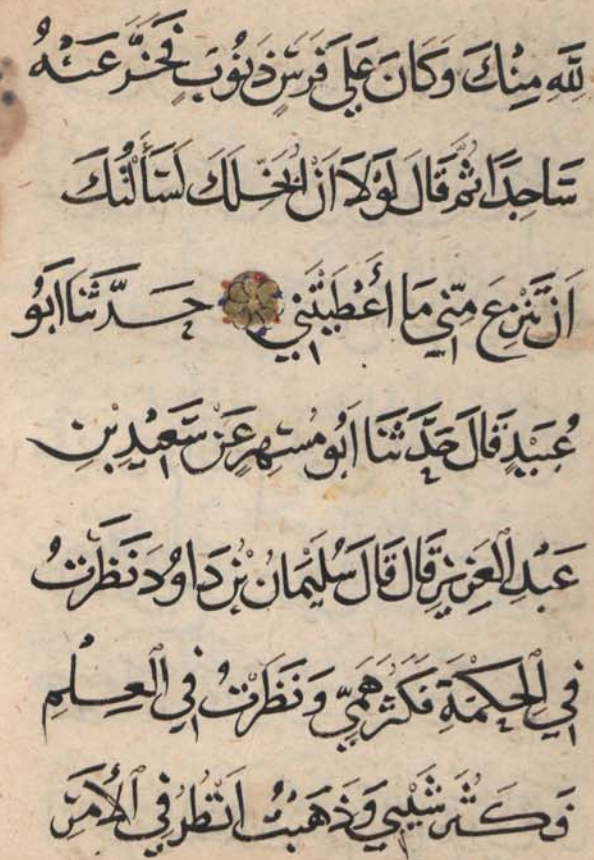 لِلَّهِ مِنْكَ وَكَانَ عَلَى فَرَسٍ ذَنُوبٍ فَخَرَّ عَنْهُ
سَاجِدًا ثُمَّ قَالَ لَوْلَا أَنْ أُبَخِّلَكَ لَسَأَلْتُكَ
اَنْ تَنْزِعَ مِنِّي مَا أَعْطَيْتَنِي حَدَّثَنَا اَبُو
عُبَيْدٍ قَالَ حَدَّثَنَا اَبُو مُسْهِرٍ عَنْ سَعِيْدِ بْنِ
عَبْدِ الْعَزِيزِ قَالَ قَالَ سُلَيْمَانُ بْنُ دَاوُدَ نَظَرْتُ
فِي الْحِكْمَةِ فَكَثُرَ هَمِّي وَنَظَرْتُ فِي الْعِلْمِ
فَكَثُرَ شَيْبِي وَذَهَبْتُ اَنْظُرُ فِي الْأَمْرِ